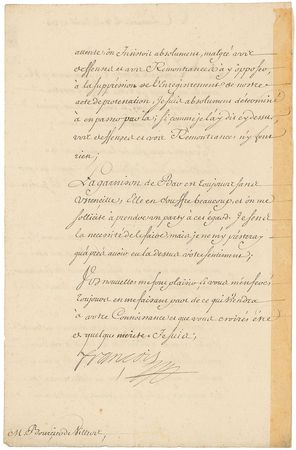 attente on Insistoit absolument, malgré votre
deffense et aux Remontrances à s'y opposer,
à la suppression de l'Enregistrement de nostre
acte de protestation, Je suis absolument determiné
à en passer par là; si comme je l'ay dit cy dessus
vos deffenses et vos Remontrances n'y font
rien;
La garnison de Bdav en toujours sans
Elle en souffre beaucoup et on me
sollicite à prendre un party à cet égard. Je sens
la necessité de le faire mais je ne m'y
qu'après avoir eu là dessus votre sentiment;
Vos nouvelles me font plaisir et vous m'en ferés
toujours en me faisant part de ce qui viendra
à votre Connoissance et que vous croirés être
de quelque merite. Je suis,
François
M. de